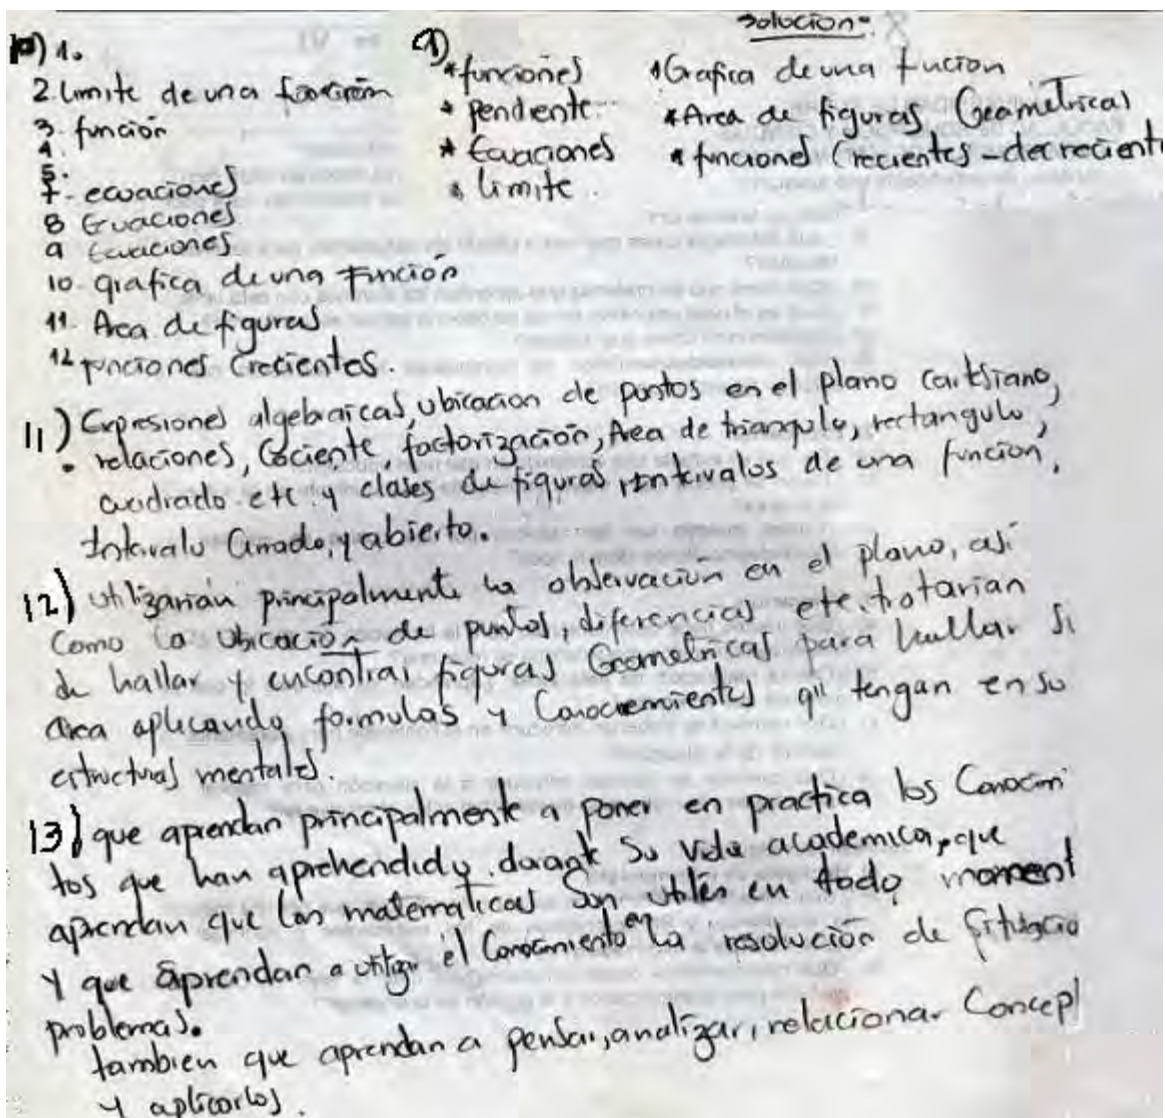 solucion
10) 1.
2. Limite de una función
3. función
4.
5.
7. ecuaciones
8 Ecuaciones
9 Ecuaciones
10. grafica de una función
11. Area de figuras
12 funciones Crecientes.
9)
* funciones
* pendiente
* Ecuaciones
* limite
* Grafica de una fución
* Area de figuras Geametricas
* funciones Crecientes - decreciente
11) Expresiones algebraicas, ubicacion de puntos en el plano cartesiano,
relaciones, Cociente, factorización, Area de triangulo, rectangulo,
cuadrado etc y clases de figuras, intervalos de una función,
Intervalo Cerrado, y abierto.
12) utilizarían principalmente la observación en el plano, asi
Como la ubicación de puntos, diferencias etc. tratarian
de hallar y encontrar figuras Geometricas para hallar su
area aplicando formulas y Conocimientos qu tengan en su
estructuras mentales.
13) que aprendan principalmente a poner en practica los Conocim
tos que han aprehendido durante su vida academica, que
aprendan que las matematicas son utiles en todo moment
y que aprendan a utilizar el Conocimiento en la resolución de situacio
problemas.
tambien que aprendan a pensar, analizar, relacionar Concept
y aplicarlos.